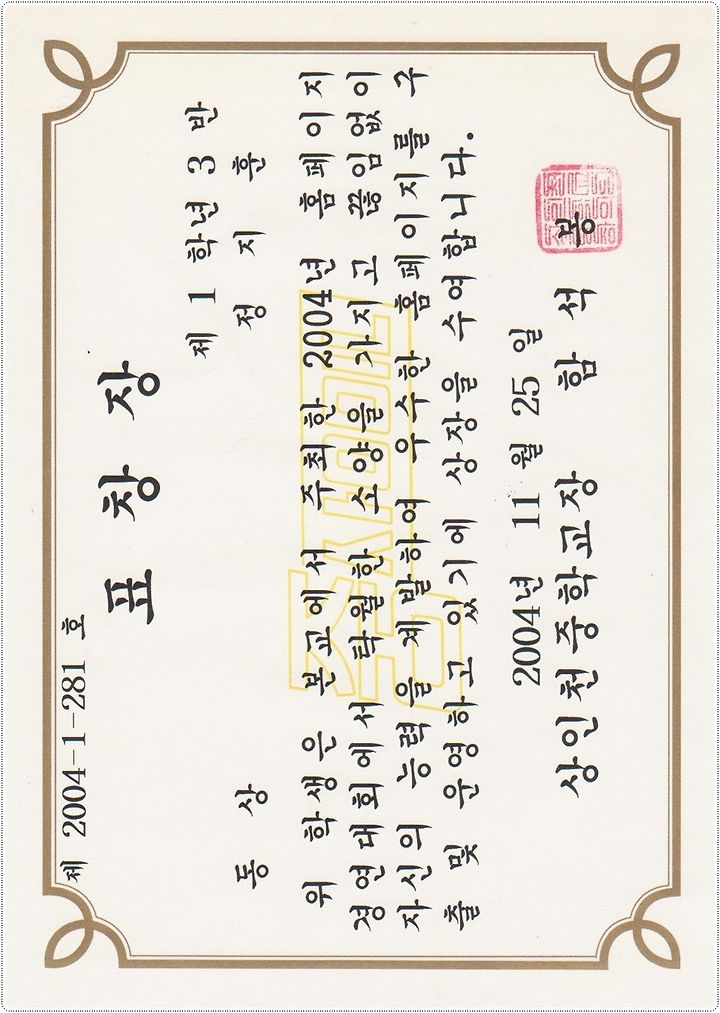 제 2004-1-281 호
표 창 장
제 1 학년 3 반
동 상 정 지 훈
위 학생은 본교에서 주최한 2004년 홈페이지
경연대회에서 탁월한 소양을 가지고 끊임없이
자신의 능력을 계발하여 우수한 홈페이지를 구
축 및 운영하고 있기에 상장을 수여합니다.
2004년 11 월 25 일
상인천중학교장 함 석